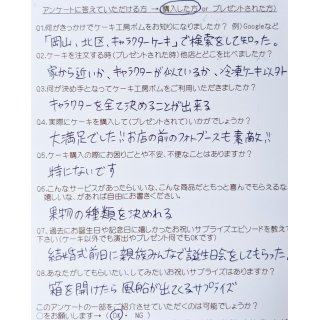 アンケートに答えていただける方 → (購入した方 or プレゼントされた方)
01.何がきっかけでケーキ工房ボムをお知りになりましたか？ 例)Googleなど
「岡山、北区、キャラクターケーキ」で検索をして知った。
02.ケーキを注文する時(プレゼントされた時)他店とどこを比べましたか？
家から近いか、キャラクターが似ているか、冷凍ケーキ以外
03.何が決め手となってケーキ工房ボムをご利用いただきましたか？
キャラクターを全て決めることが出来る
04.実際にケーキを購入して(プレゼントされて)いかがでしょうか？
大満足でした!!お店の前のフォトブースも素敵!!
05.ケーキ購入の際にお困りごとや不安、不便なことはありますか？
特にないです
06.こんなサービスがあったらいいな、こんな商品だともっと喜んでもらえるな
嬉しいな、があれば自由にお書きください。
果物の種類を決めれる
07.過去にお誕生日や記念日に嬉しかったお祝いサプライズエピソードを教え
下さい(ケーキ以外でも演出やプレゼント何でもOKです)
結婚式前日に親族みんなで誕生日会をしてもらった。
08.あなたがしてもらいたい、してみたいお祝いサプライズはありますか？
箱を開けたら風船が出てくるサプライズ
このアンケートの一部をご紹介させていただくのは可能でしょうか？
○をお願いします→ ( OK ・ NG )